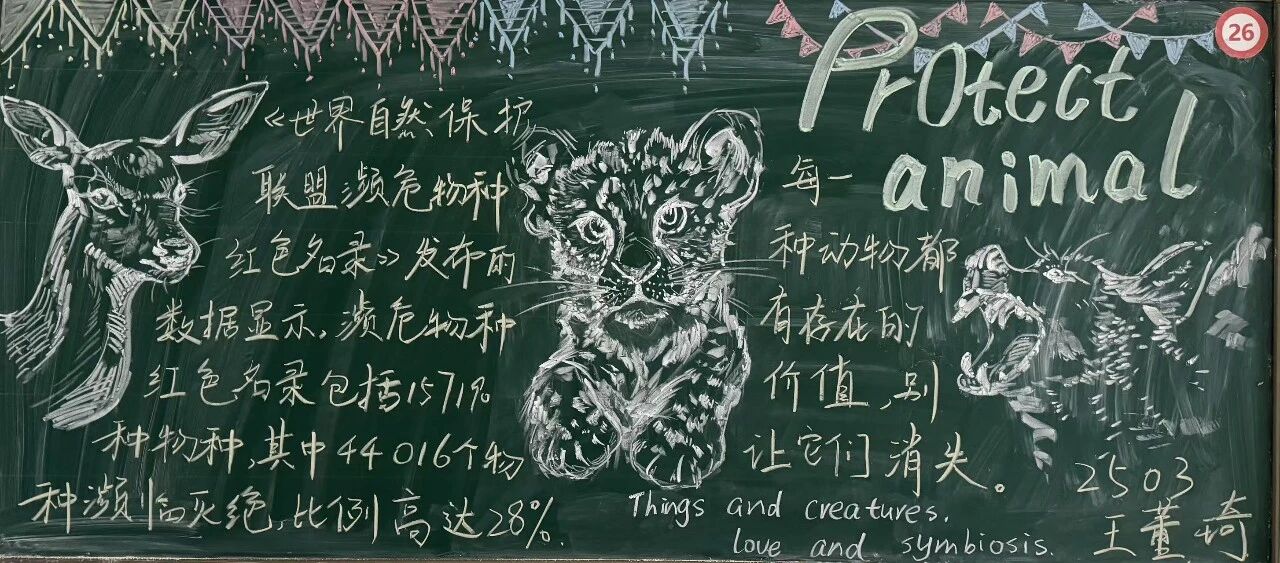 26
Protect
animal
《世界自然保护
联盟濒危物种
红色名录》发布的
数据显示,濒危物种
红色名录包括1571%
种物种,其中44016个物
种濒临灭绝,比例高达28%.
每一
种动物都
有存在的
价值,别
让它们消失。
Things and creatures.
love and symbiosis.
2503
王董埼